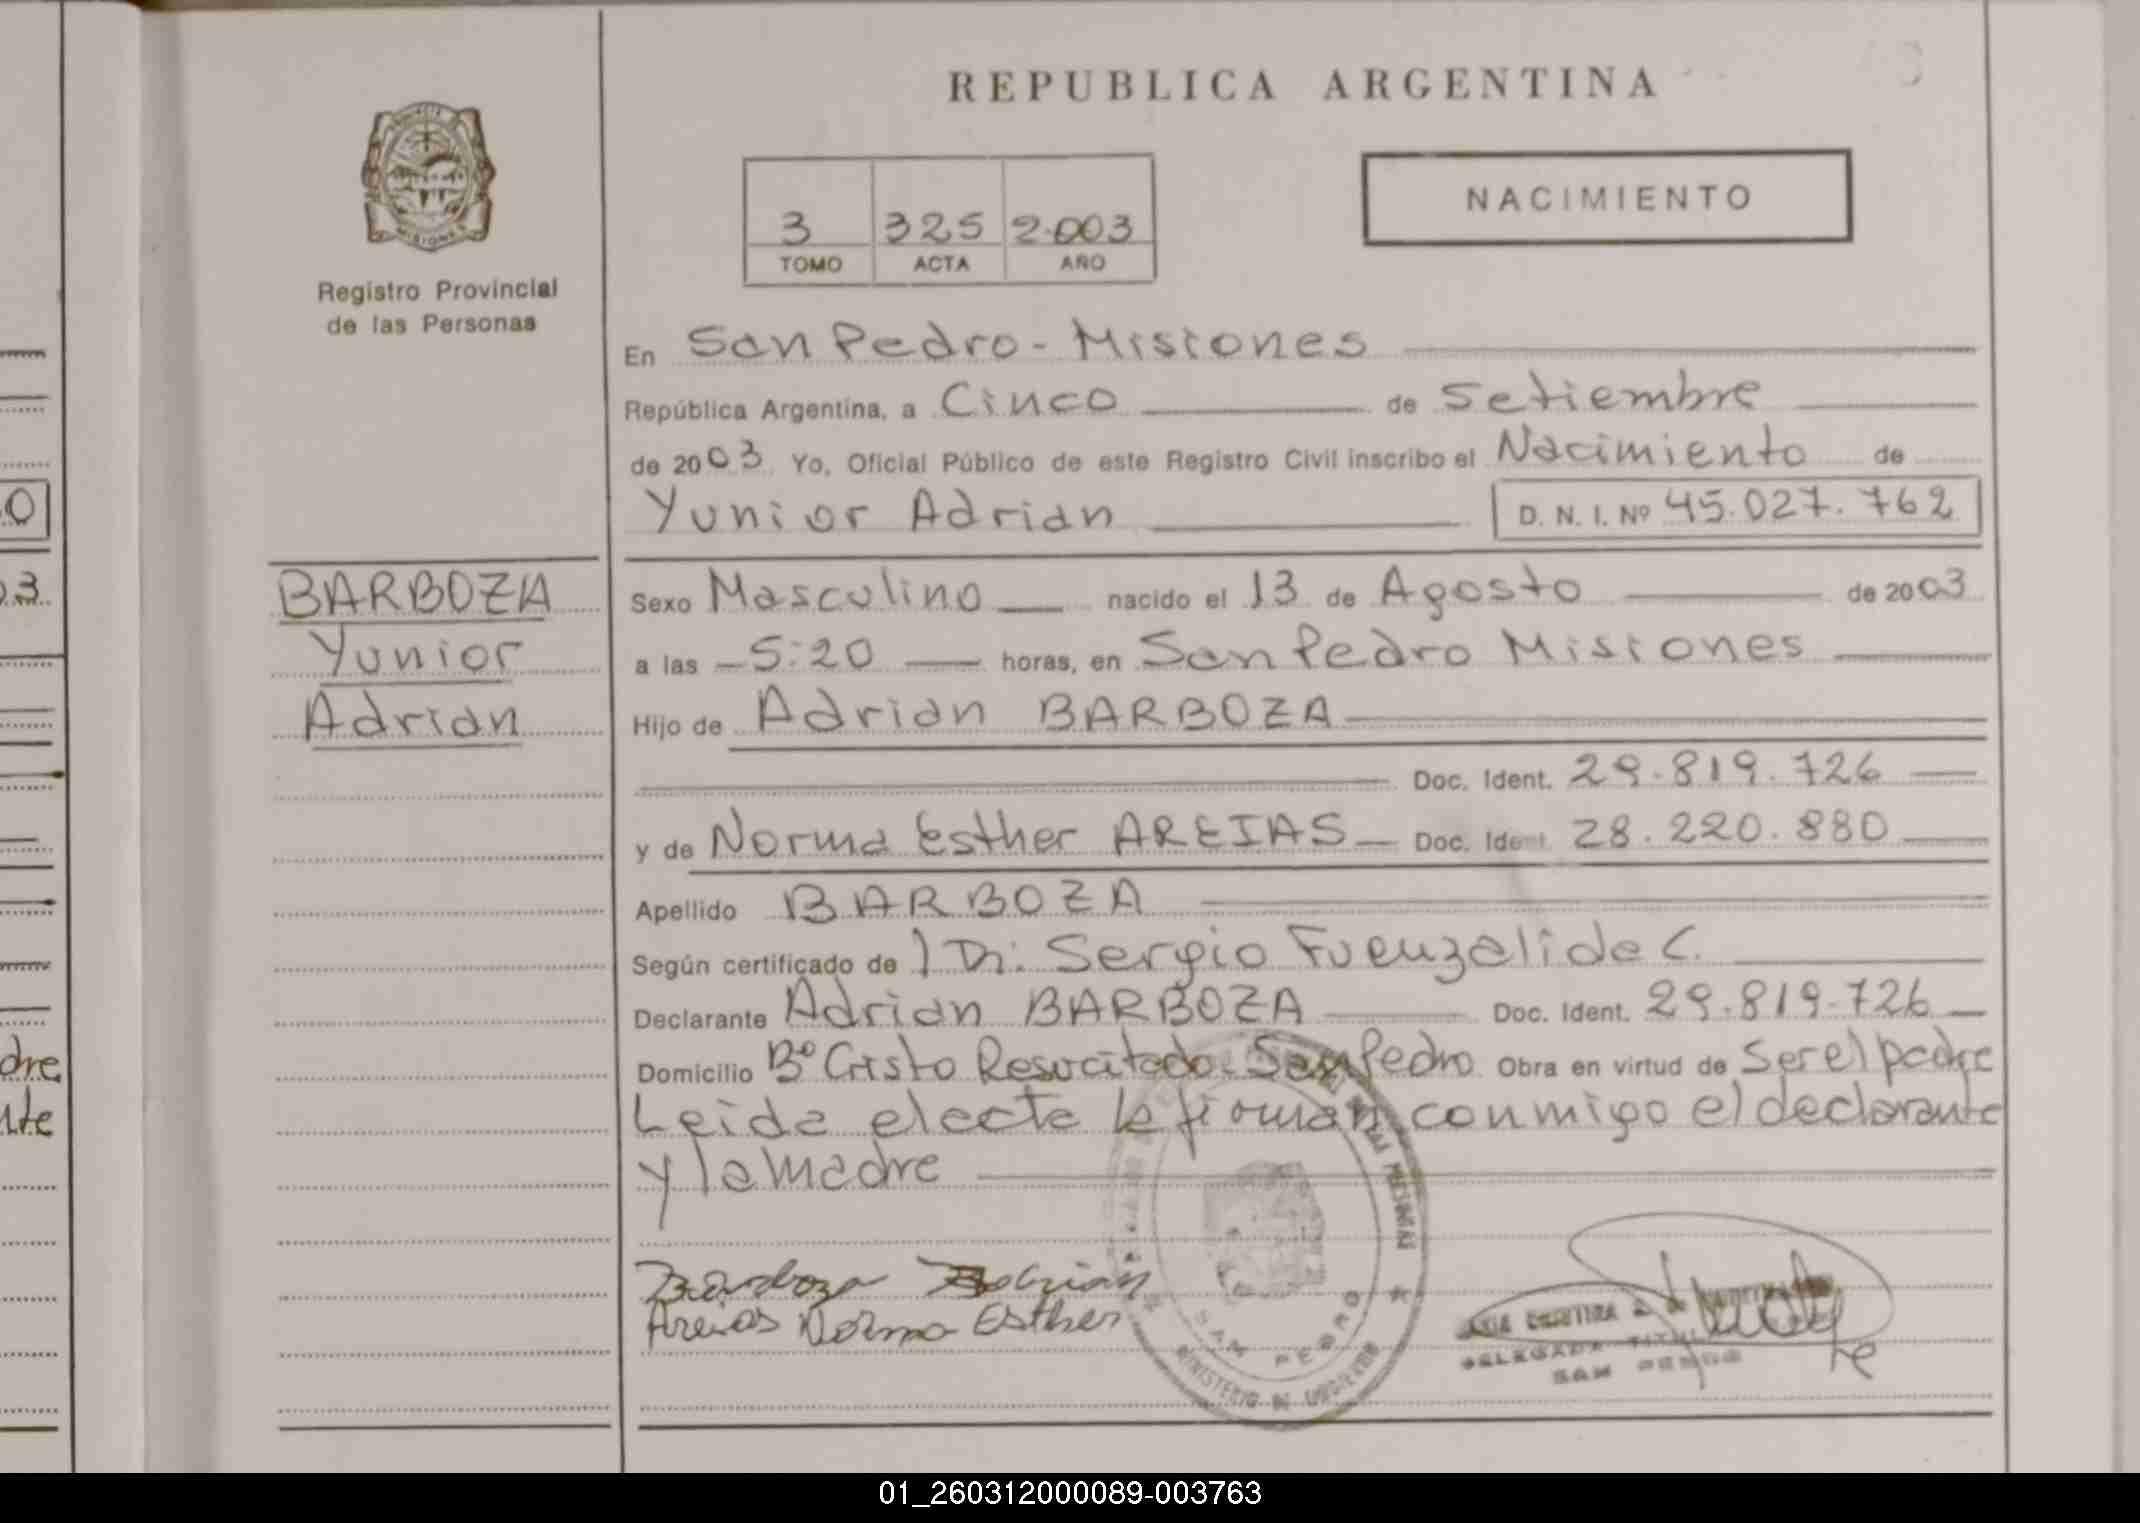 REPUBLICA ARGENTINA
NACIMIENTO
3 325 2.003
TOMO ACTA AÑO
Registro Provincial
de las Personas
En San Pedro - Misiones
República Argentina, a Cinco de Setiembre
de 2003 Yo, Oficial Público de este Registro Civil inscribo el Nacimiento de
Yunior Adrian D. N. I. Nº 45.027.762
BARBOZA
Yunior
Adrian
Sexo Masculino nacido el 13 de Agosto de 2003
a las 5:20 horas, en San Pedro Misiones
Hijo de Adrian BARBOZA
Doc. Ident. 29.819.726
y de Norma Esther AREIAS Doc. Ident. 28.220.880
Apellido BARBOZA
Según certificado de Dr: Sergio Fuenzalida C.
Declarante Adrian BARBOZA Doc. Ident. 29.819.726
Domicilio Bº Cristo Resucitado. San Pedro Obra en virtud de Ser el padre
Leida el acta la firman conmigo el declarante
y la madre
Barboza Adrian
Areias Norma Esther
SAN PEDRO
MINISTERIO DE GOBIERNO
DELEGADA TITULAR
SAN PEDRO
0
03
dre
nte
01_260312000089-003763